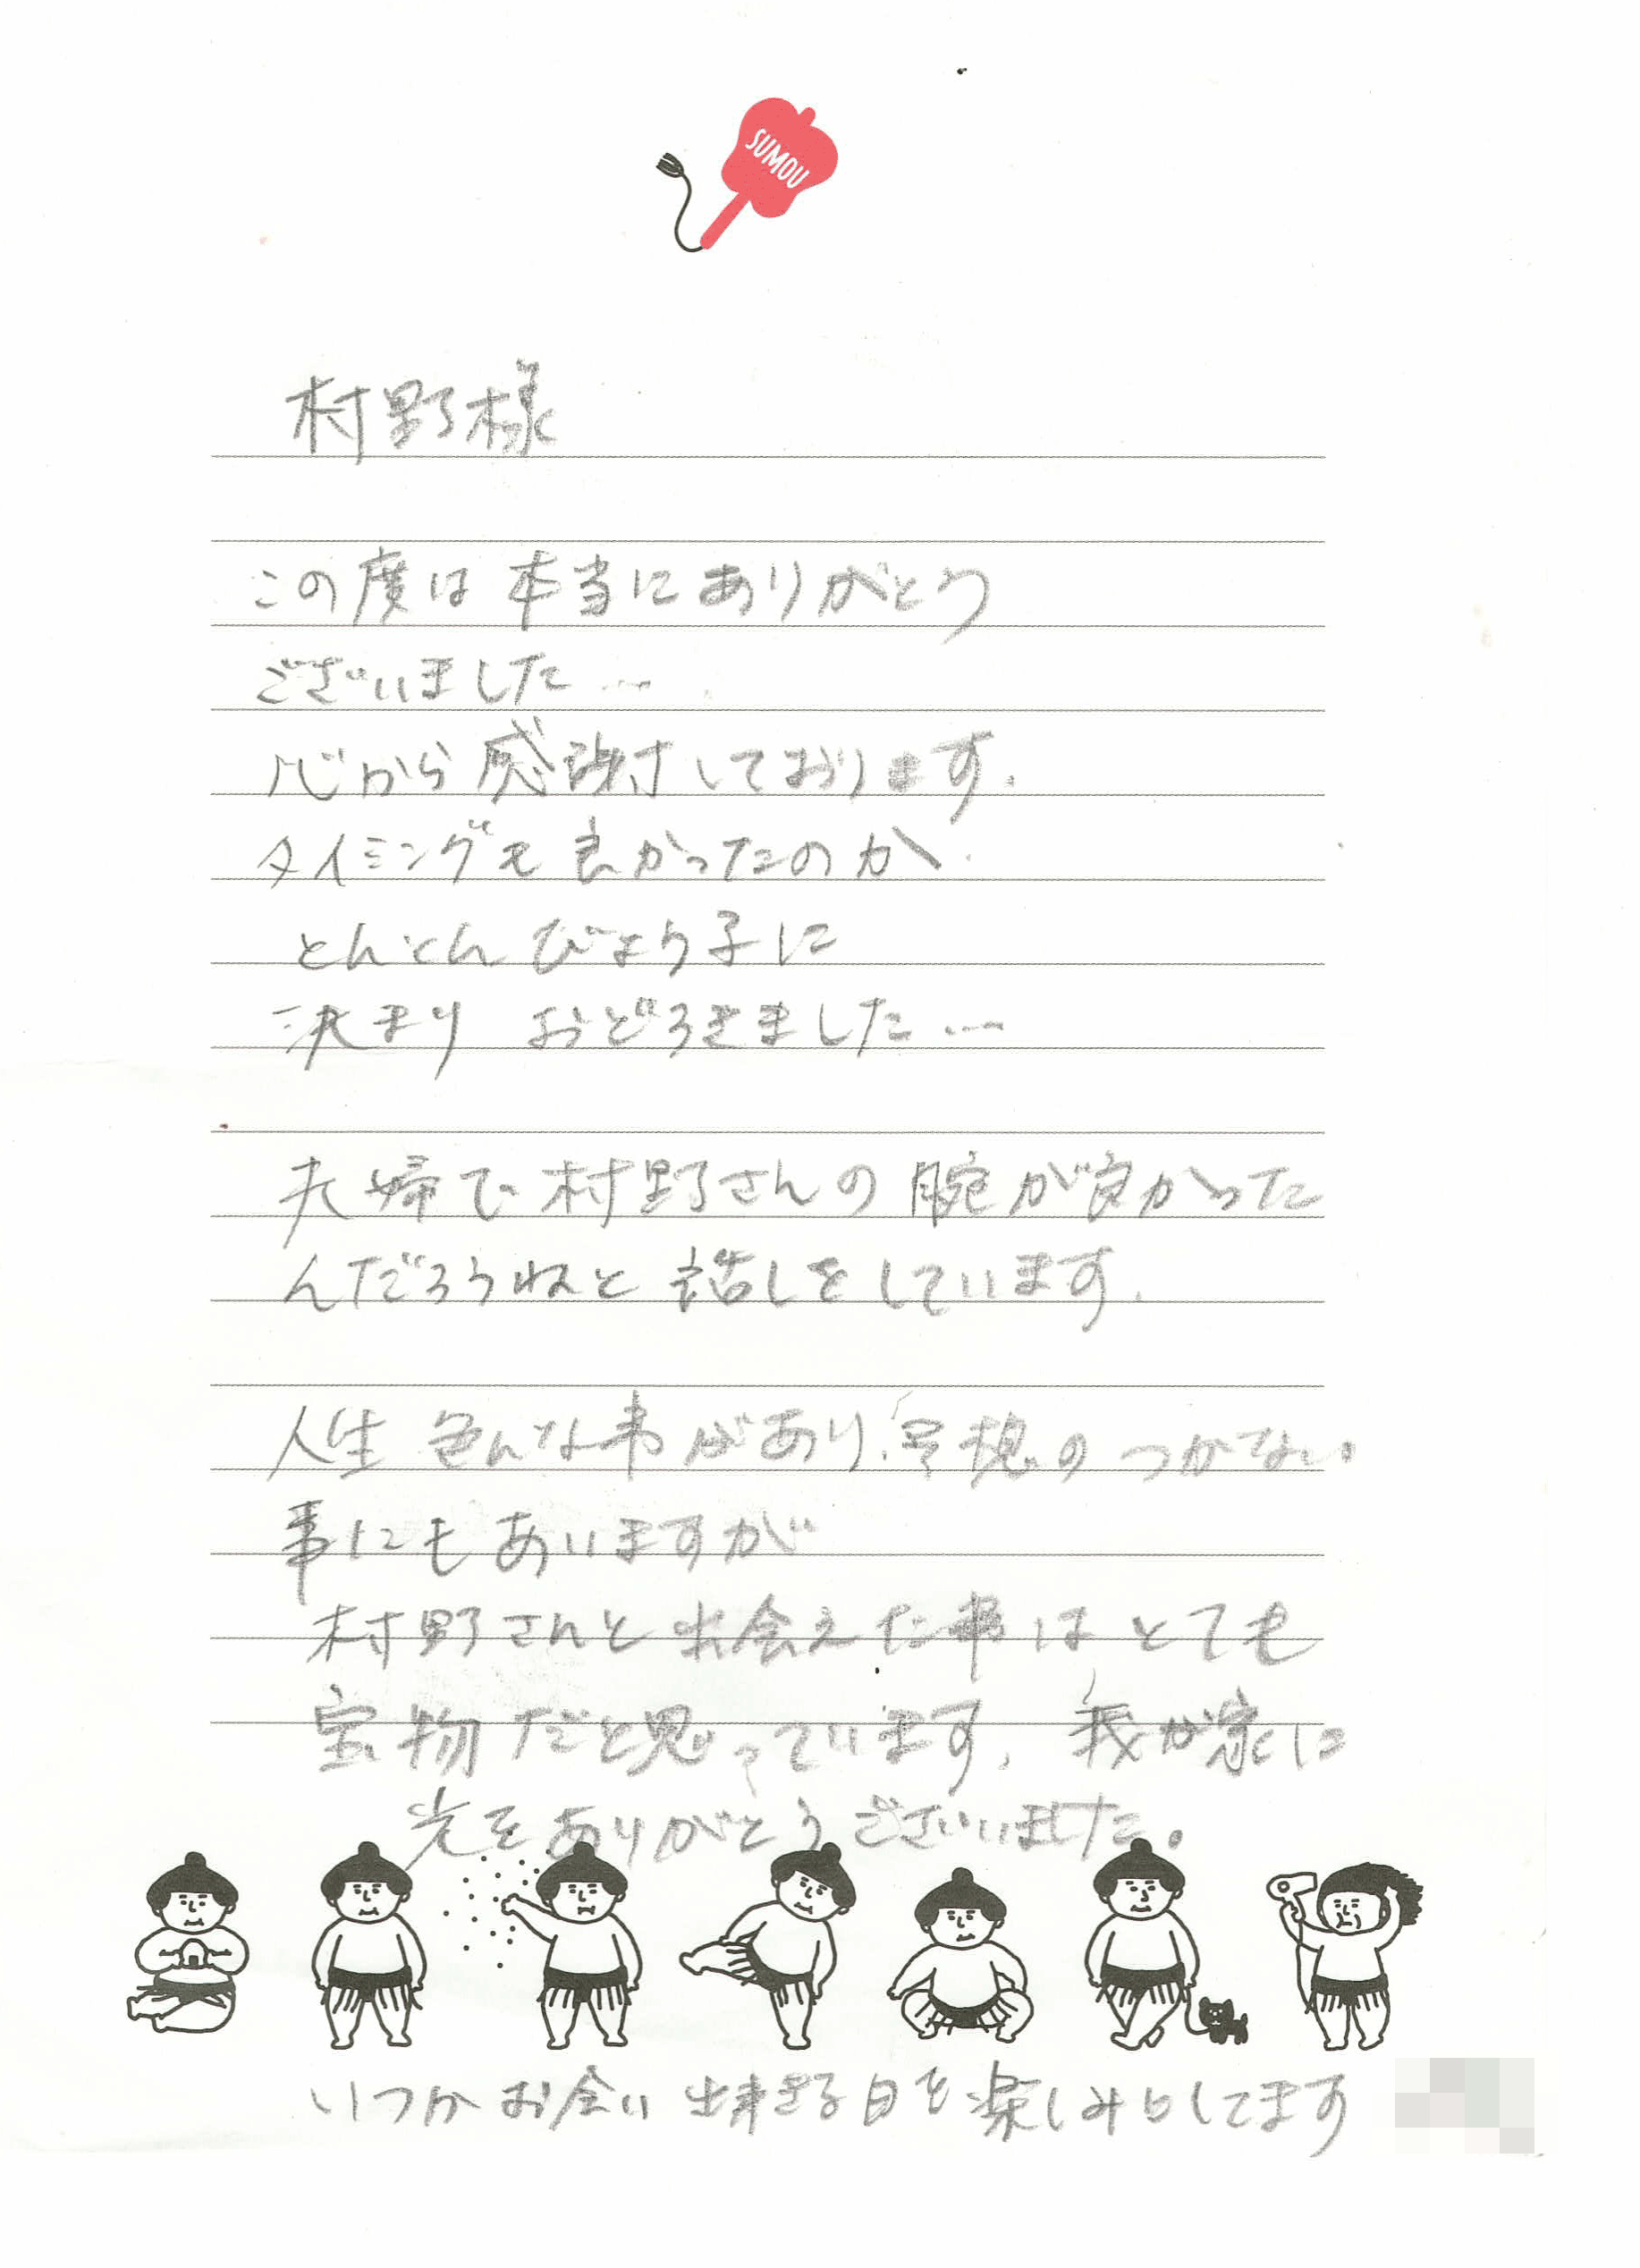 SUMOU
村野様
この度は本当にありがとう
ございました…
心から感謝しております。
タイミングも良かったのか
とんとんびょう子に
決まり おどろきました…
夫婦で村野さんの腕が良かった
んだろうねと話しをしています。
人生色んな事があり、予想のつかない
事にもあいますが
村野さんと出会えた事はとても
宝物だと思っています。我が家に
光をありがとうございました。
いつかお会い出来きる日を楽しみにしてます